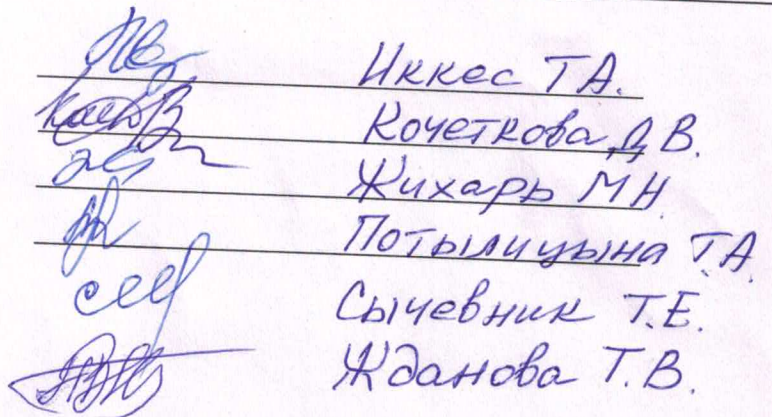 Иккес Т.А.
Кочеткова Д В.
Жихарь М Н
Потылицына Т.А.
Сычевник Т.Е.
Жданова Т.В.